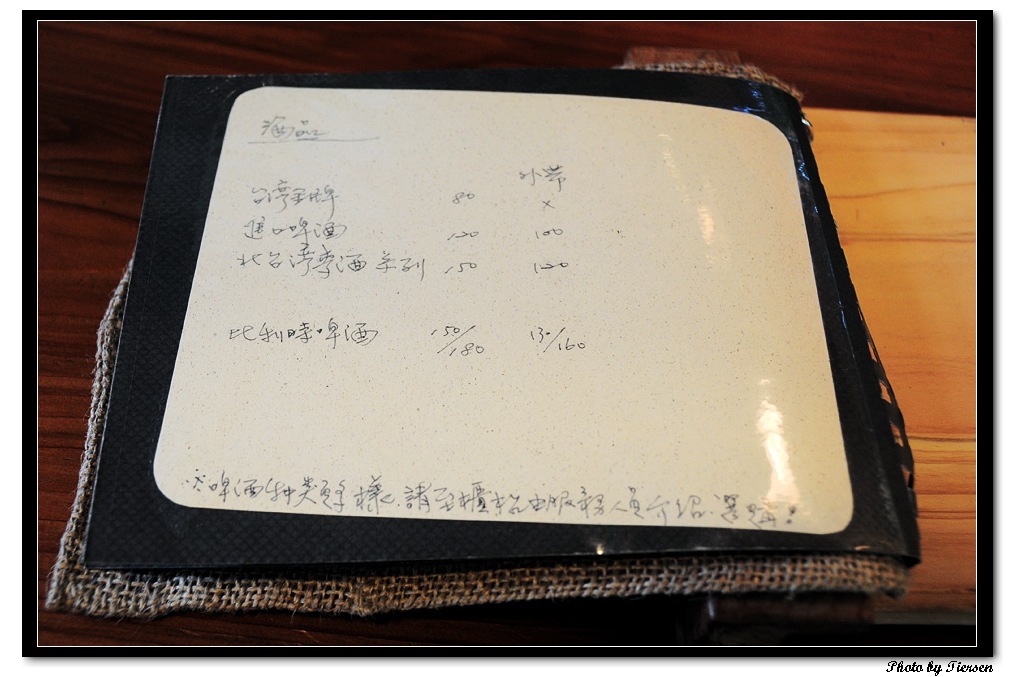 酒品
外帶
台灣金牌 80 x
進口啤酒 120 100
北台灣麥酒系列 150 120
比利時啤酒 150/180 130/160
※啤酒种类多樣,請至櫃枱由服務人員介紹、選購!
Photo by Tiersen